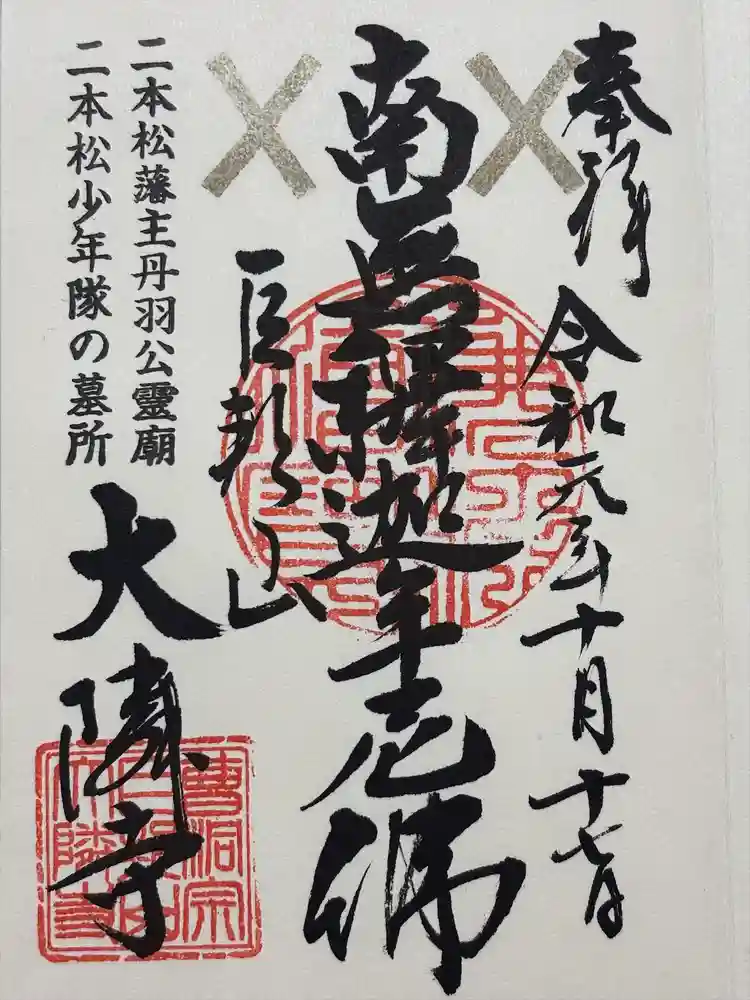 奉拝
令和元年十月十七日
南無釋迦牟尼佛
巨邦山
二本松藩主丹羽公霊廟
二本松少年隊の墓所
大隣寺
曹洞宗
巨邦山
大隣寺